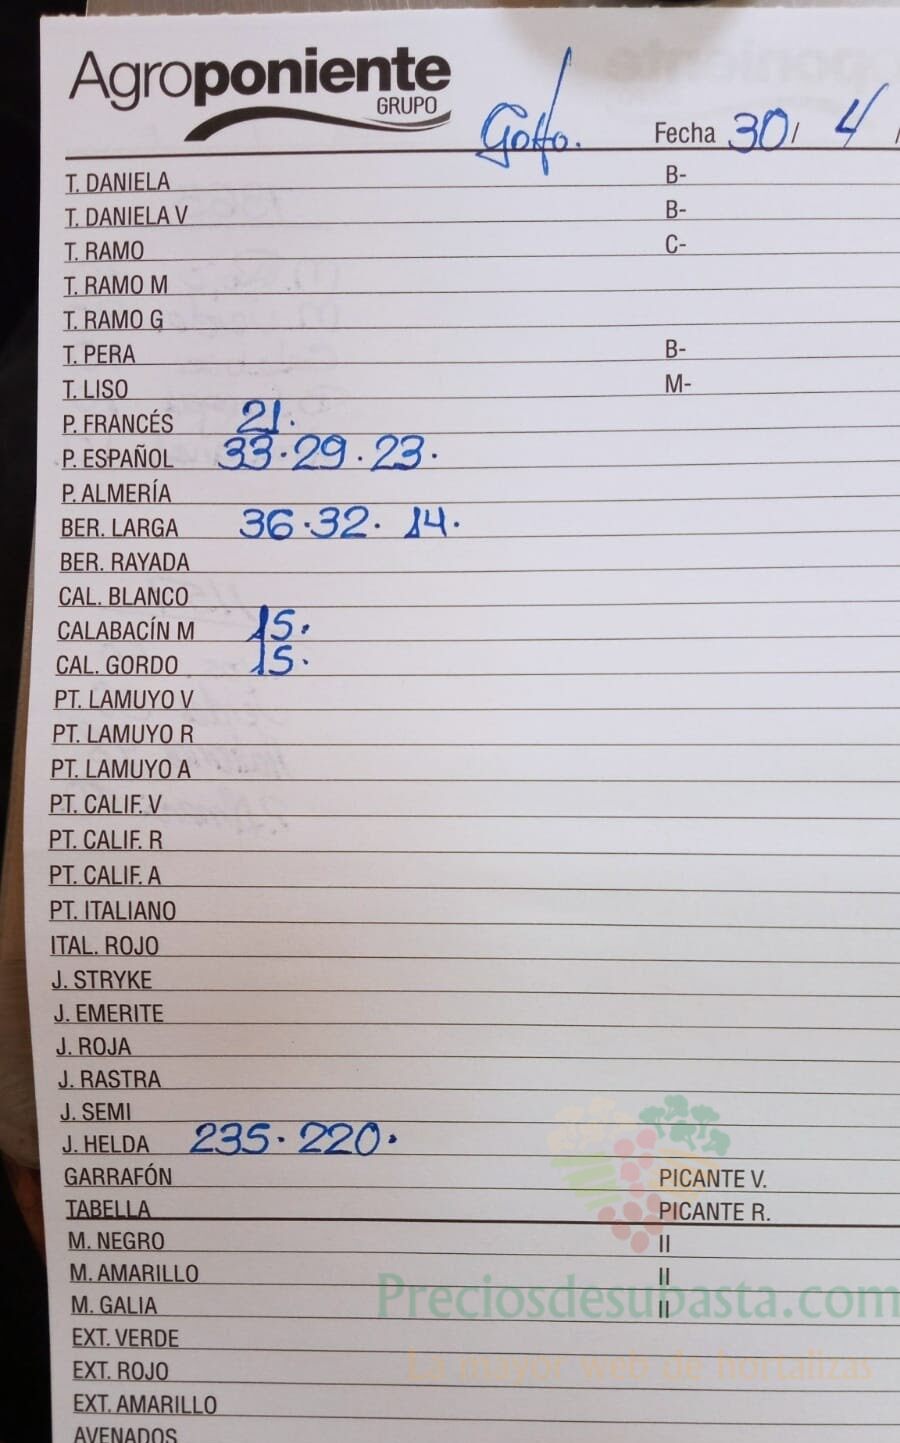 Agroponiente
GRUPO
Fecha 30/ 4 /
T. DANIELA B-
T. DANIELA V B-
T. RAMO C-
T. RAMO M
T. RAMO G
T. PERA B-
T. LISO M-
P. FRANCÉS 21.
P. ESPAÑOL 33.29.23.
P. ALMERÍA
BER. LARGA 36.32. 14.
BER. RAYADA
CAL. BLANCO
CALABACÍN M 15.
CAL. GORDO 15.
PT. LAMUYO V
PT. LAMUYO R
PT. LAMUYO A
PT. CALIF. V
PT. CALIF. R
PT. CALIF. A
PT. ITALIANO
ITAL. ROJO
J. STRYKE
J. EMERITE
J. ROJA
J. RASTRA
J. SEMI
J. HELDA 235. 220.
GARRAFÓN PICANTE V.
TABELLA PICANTE R.
M. NEGRO II
M. AMARILLO II
M. GALIA II
EXT. VERDE
EXT. ROJO
EXT. AMARILLO
AVENADOS
Preciosdesubasta.com
La mayor web de hortalizas